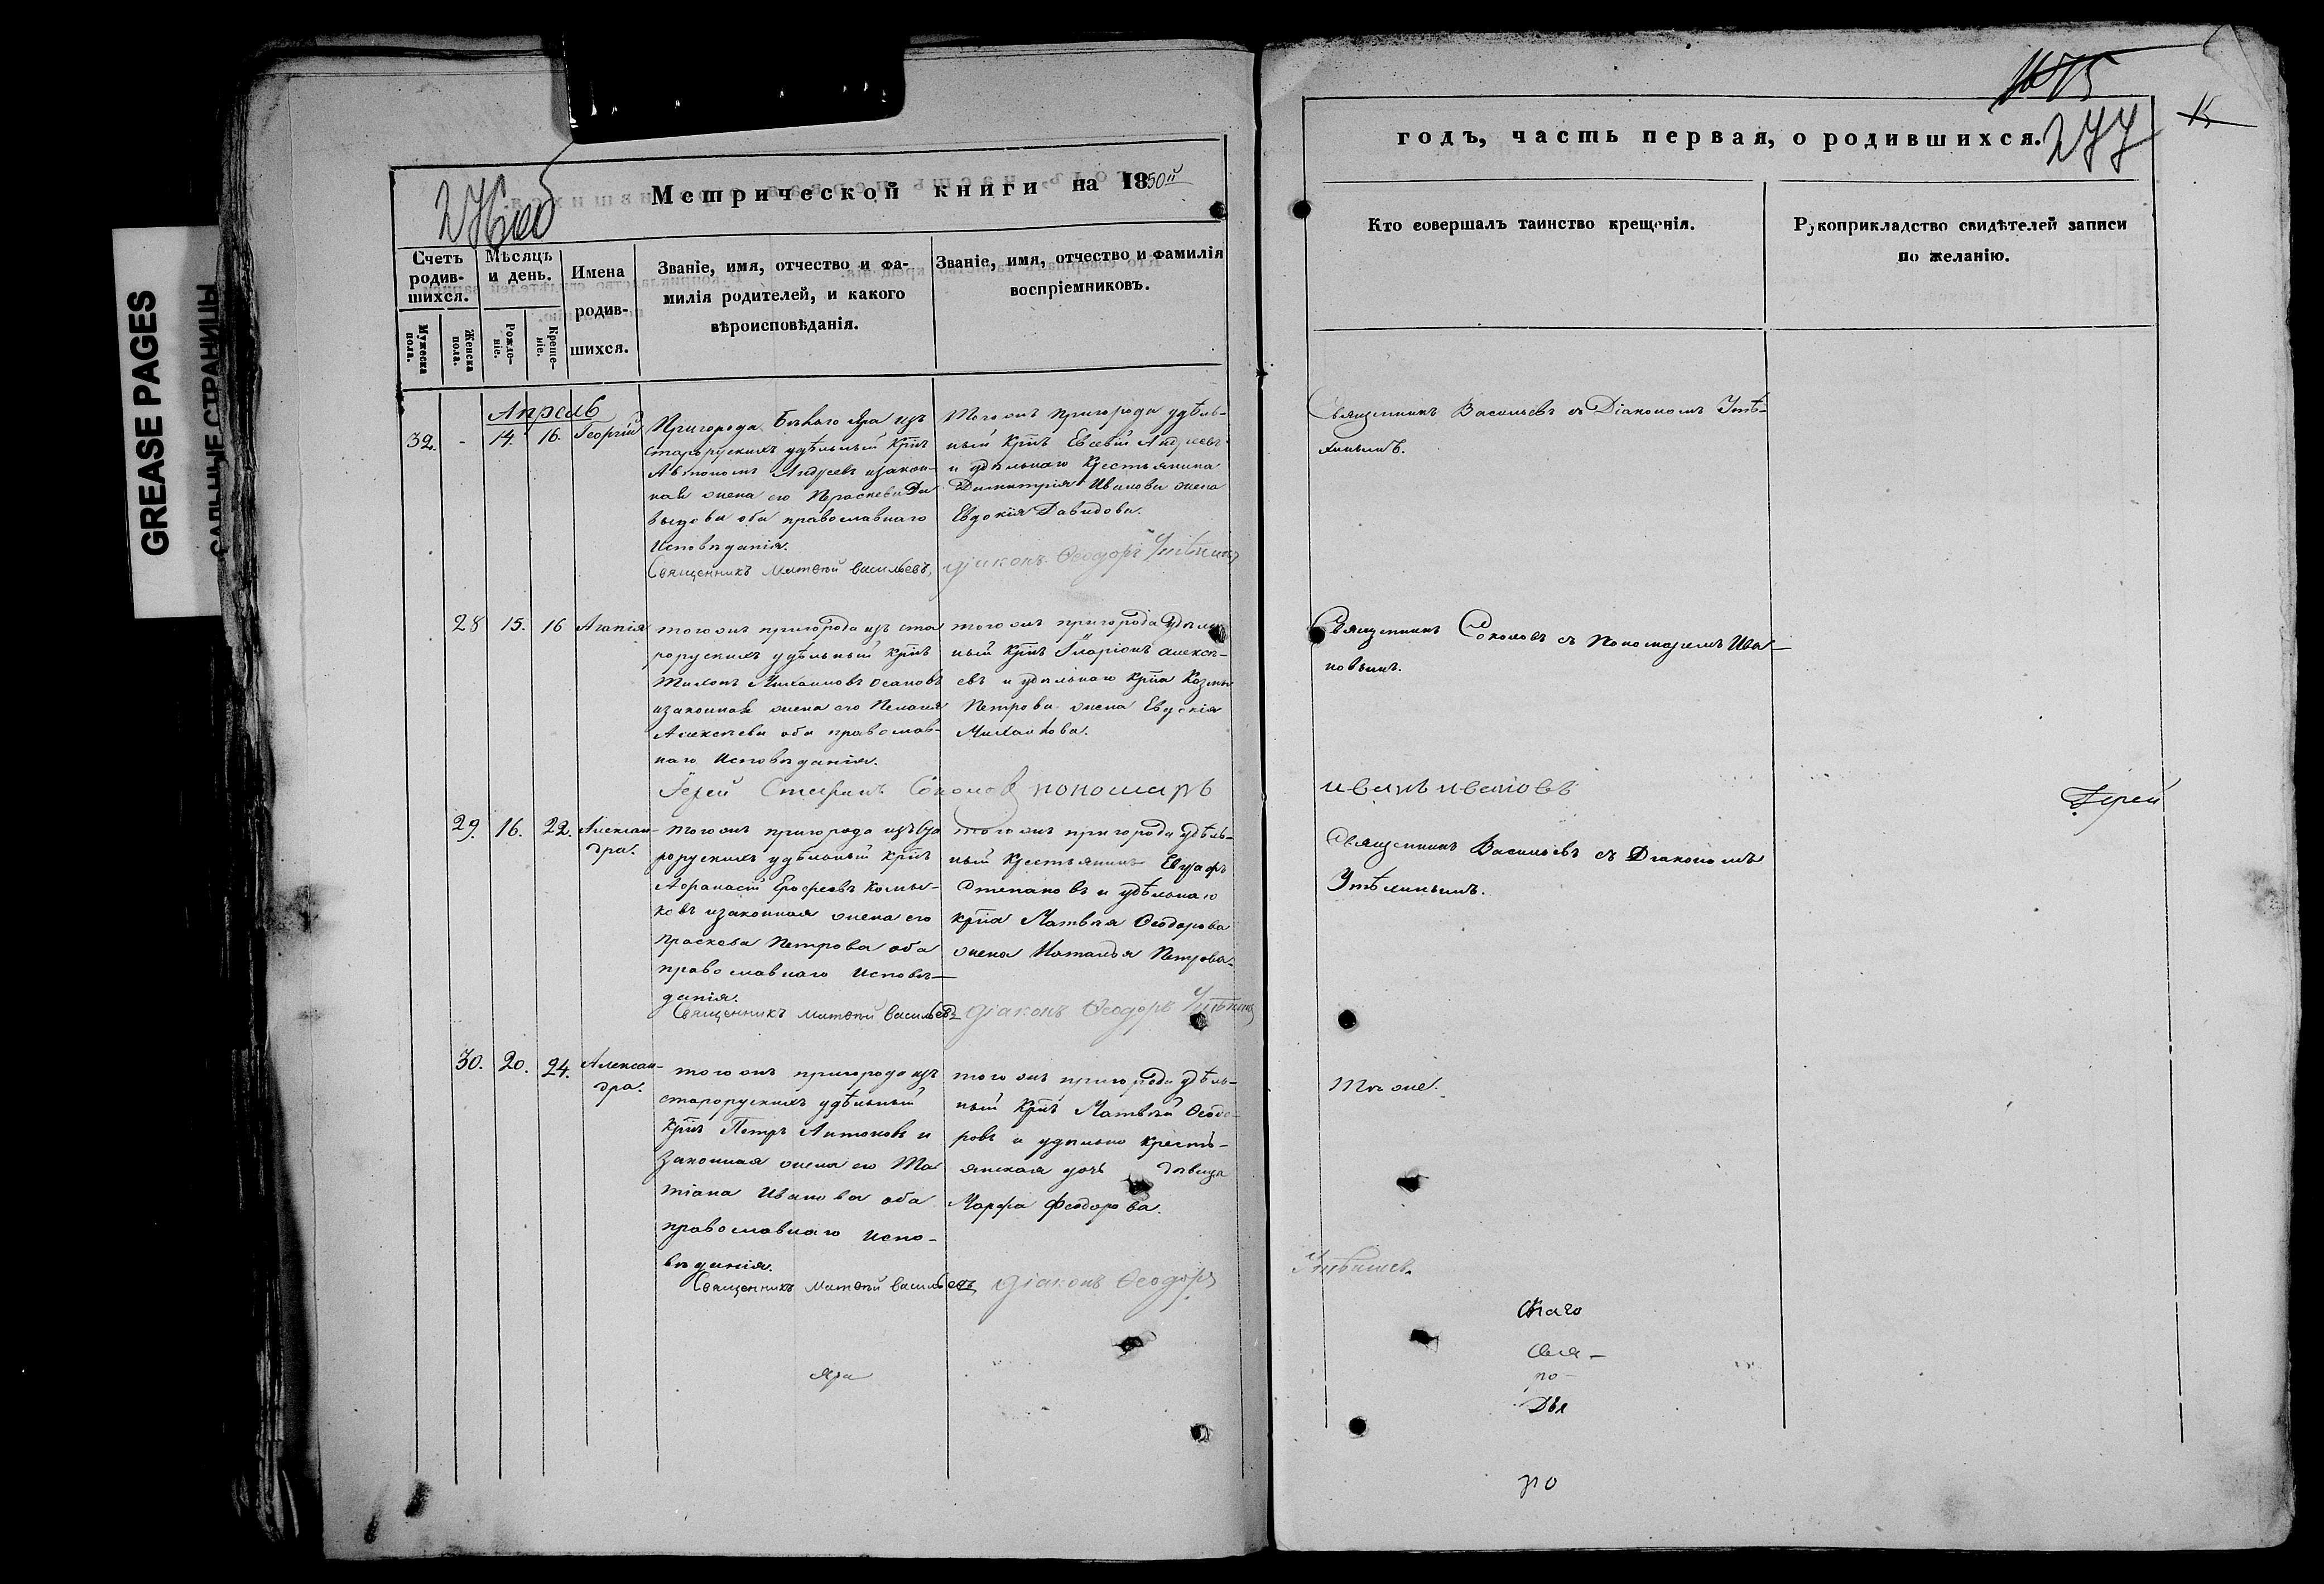 GREASE PAGES
САЛЬНЫЕ СТРАНИЦЫ
276 об
Метрической книги на 1850й
Счетъ родив-шихся.
Мѣсяцъ и день.
Имена родив-шихся.
Званіе, имя, отчество и фа-
милія родителей, и какого
вѣроисповѣданія.
Званіе, имя, отчество и фамилія
воспріемниковъ.
Мужеска пола.
Женска пола.
Рожде-ніе.
Креще-ніе.
Апрель
32. - 14. 16. Георгій
Пригорода Бѣлаго Яра изъ
старорускихъ удѣльный Крнъ
Автономъ Андреевъ изакон-
ная жена его Параскева Да
выдова оба православнаго
Исповѣданія.
Священникъ Матвѣй Васильевъ,
Тогожъ пригорода удѣль-
ный Крнъ Евсевій Андреевъ
и удѣльнаго Крестьянина
Димитрія Иванова жена
Евдокія Давидова.
діаконъ Ѳеодоръ Утѣхинъ
28 15. 16 Агапія
тогожъ пригорода изъ ста
рорускихъ удѣльный крнъ
Тихонъ Михаиловъ Осиповъ
изаконная жена его Пелагия
Алексѣева оба православ-
наго Исповѣданія.
Іерей Стефанъ Соколовъ пономарь
тогожъ пригорода Удѣль
ный крнъ Иларіонъ алексѣ-
евъ и удѣльнаго крна Козмы
Петрова жена Евдокія
Михаилова.
29. 16. 22. Алексан-
дра.
тогожъ пригорода изъ ста
рорускихъ удѣльный крнъ
Афанасій Ерофеевъ
изаконная жена его
праскева Петрова оба
православнаго Исповѣ-
данія.
Священникъ Матвѣй Васильевъ
тогожъ пригорода удѣль-
ный Крестьянинъ Евграфъ
Степановъ и удѣльнаго
крна Матвѣя Ѳеодорова
жена Наталья Петрова.
діаконъ Ѳеодоръ Утѣхинъ
30. 20. 24. Алексан-
дра.
тогожъ пригорода изъ
старорускихъ удѣльный
крнъ Петръ Антоновъ и
законная жена его Та
тіана Иванова оба
православнаго Испо-
вѣданія.
Священникъ Матвѣй Васильевъ
тогожъ пригорода удѣль-
ный Крнъ Матвѣй Ѳеодо-
ровъ и удѣльно кресть-
янская дочь дѣвица
Марфа Феодорова.
діаконъ Ѳеодоръ
яра
годъ, часть первая, о родившихся.
277
Кто совершалъ таинство крещенія.
Рукоприкладство свидѣтелей записи
по желанію.
Священникъ Васильевъ съ Діакономъ Утѣ-
хинымъ.
Священникъ Соколовъ съ Пономаремъ Ива-
новымъ.
иванъ ивановъ
Іерей
Священникъ Васильевъ съ Діакономъ
Утѣхинымъ.
Тѣ же.
по